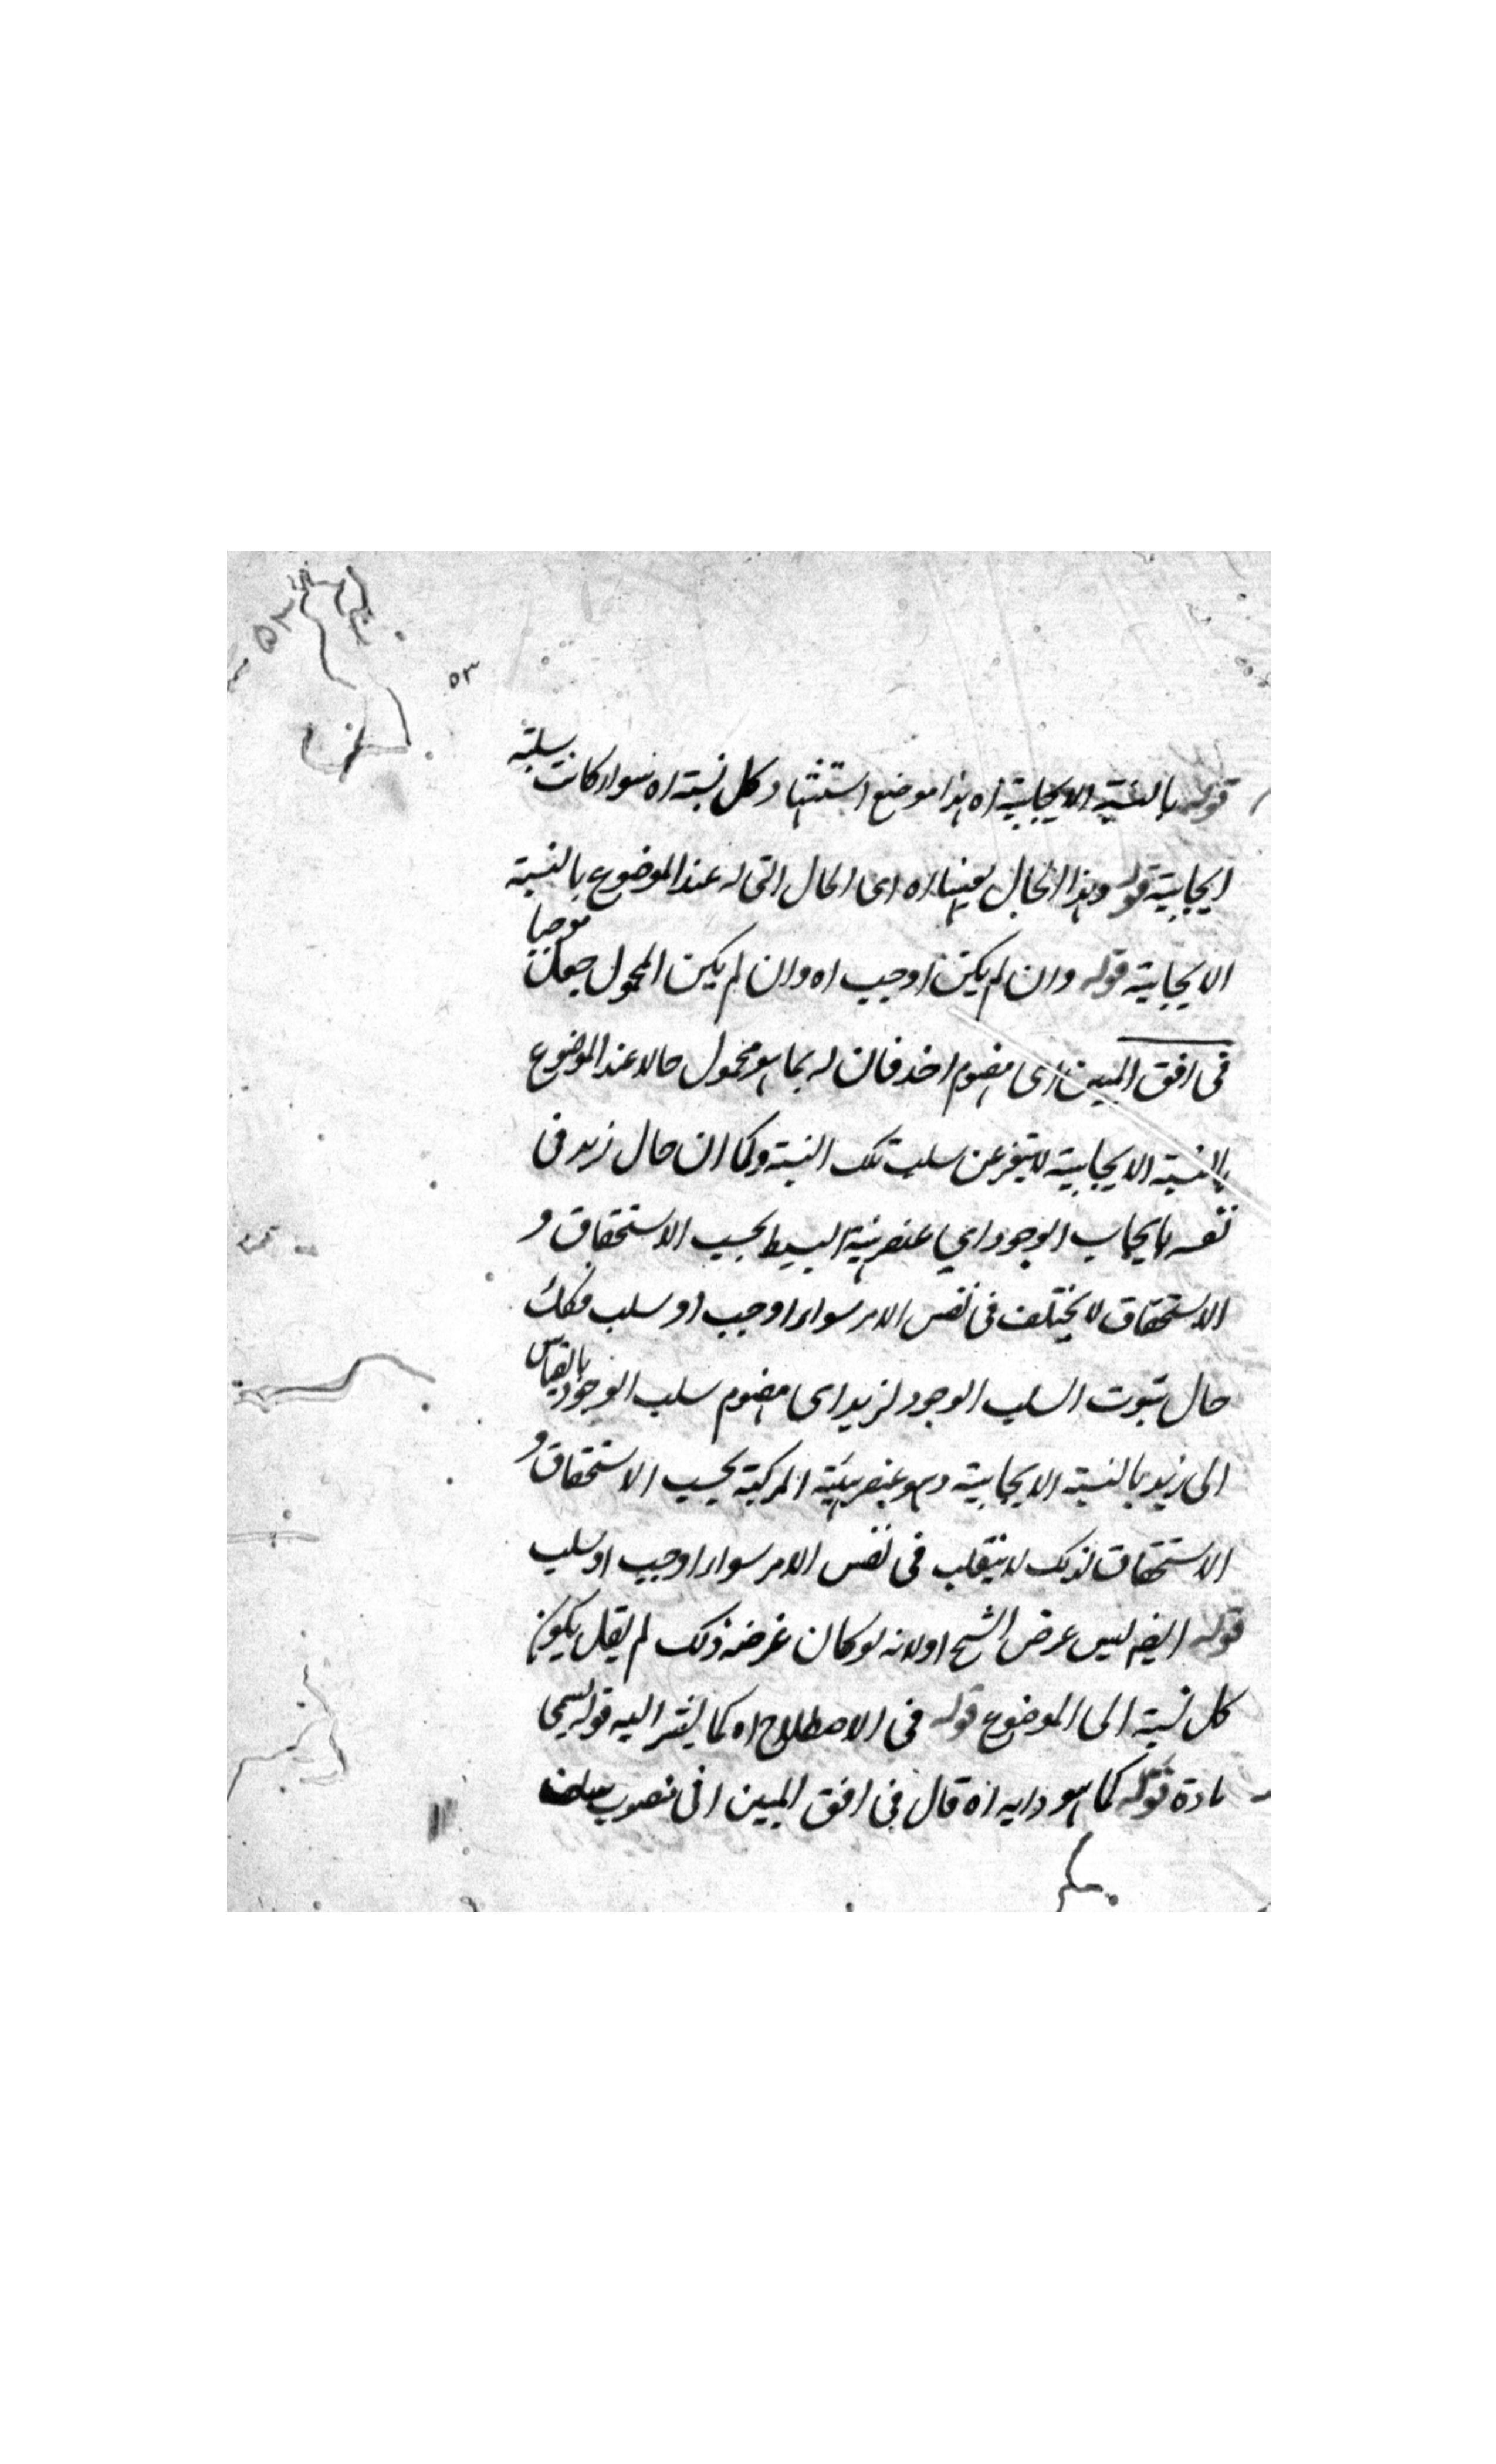 ٥٣
٥٣
قوله بالنسبة الايجابية اه هذا موضع استشهاد كل نسبة اه سواء كانت سلبية
ايجابية قوله وهذا الحال بعينها اه اى الحال التى له عند الموضوع بالنسبة
الايجابية قوله وان لم يكن اوجب اه وان لم يكن المحمول جعل موجبا
فى افق المبين اى مفهوم اخذ فان له بما هو محمول حالا عند الموضوع
بالنسبة الايجابية لا يتغير عن سلب تلك النسبة وكما ان حال زيد فى
نفسه بايجاب الوجود اي عنصر هيئة البسيط بحسب الاستحقاق و
الاستحقاق لا يختلف فى نفس الامر سواء اوجب او سلب فكك
حال ثبوت السلب الوجود لزيد اى مفهوم سلب الوجود بالقياس
الى زيد بالنسبة الايجابية وهو عنصر هيئية المركبة بحسب الاستحقاق و
الاستحقاق لذلك لا ينقلب فى نفس الامر سواء اوجب او سلب
قوله ايضا ليس غرض الشيخ اه لانه لو كان غرضه ذلك لم يقل يكون
كل نسبة الى الموضوع قوله فى الاصطلاح اه كما يشير اليه قوله يسمى
مادة قوله كما هو دابه اه قال فى افق المبين انى تصوب